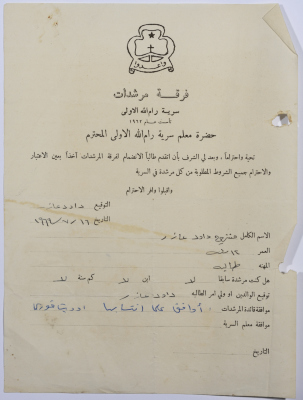 وأعدوا
فرقة مرشدات
سرية رام الله الاولى
تأسست عام ١٩٢٢
حضرة معلم سرية رام الله الاولى المحترم
تحية واحتراماً، وبعد لي الشرف بأن اتقدم طالباً الانضمام لفرقة المرشدات آخذاً بعين الاعتبار
والاحترام جميع الشروط المطلوبة من كل مرشدة في السرية
واقبلوا وافر الاحترام
التوقيع داود
التاريخ
الاسم الكامل داود
العمر
المهنه
هل كنت مرشدة سابقا لا اين لا كم سنة لا
توقيع الوالدين او ولي امر الطالبه داود
موافقة قائدة المرشدات : أوافق
موافقة معلم السرية
التاريخ